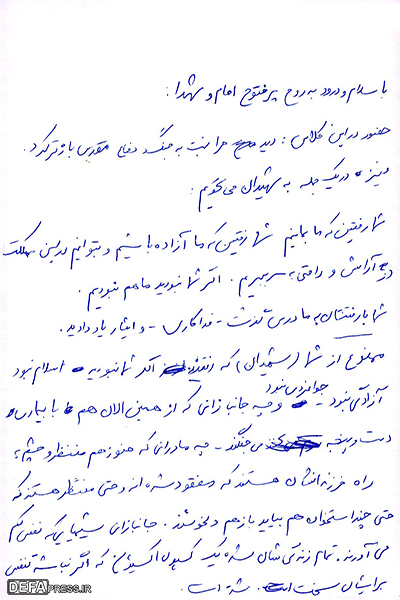 با سلام و درود به روح پر فتوح امام و شهدا:
حضور در این کلاس: دید مرا نسبت به جنگ و دفاع مقدس بازتر کرد.
و نیز در یک جمله به شهیدان می‌گویم:
شما رفتین که ما بمانیم شما رفتین که ما آزاده باشیم و بتوانیم در این مملکت
در آرامش و راحتی به سر ببریم. اگر شما نبودید ما هم نبودیم.
شما با رفتنتان به ما درس گذشت - فداکاری - و ایثار یاد دادید.
ممنون از شما (شهیدان) که رفتید اگر شما نبودید اسلام نبود
آزادی نبود - جوانمردی نبود و چه جانبازانی که از همین الان هم با بیماری
دست و پنجه می‌جنگند - چه مادرانی که هنوز هم منتظر و چشم به
راه فرزندانشان هستند که مفقود شده‌اند و حتی منتظر هستند که
حتی چند استخوان هم بیاید باز هم دلخوشند. جانبازای شیمیایی که نفس کم
می‌آورند، تمام زندگی شان شده یک کپسول اکسیژن که اگر نباشد تنفس
برایشان سخت شده است.
DEFAPRESS.IR